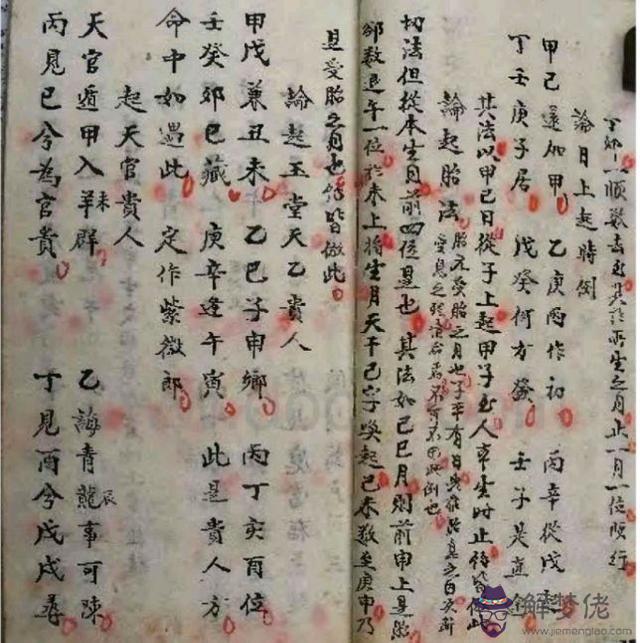 順数去至其於所生之月止一月一位順行
論日上起時例
甲己還加甲 乙庚丙作初 丙辛從戊起
丁壬庚子居 戊癸何方發 壬子是直
其法以甲己日從子上起甲子至人本生時止餘皆倣此
論起胎法
胎元受胎之月也子平有日
切法但從本生月前四位是也 其法如己巳月則前申上是
卯数退午一位於未上將生月天干己字喚起己未数至庚申乃
是受胎之月也餘皆倣此
論起玉堂天乙貴人
甲戊兼丑未 乙己子申鄉 丙丁亥酉位
壬癸卯巳藏 庚辛逢午寅 此是貴人方
命中如遇此 定作紫微郎
起天官貴人
天官遁甲入羊群 乙誨青龍事可陳
未
辰
丙見巳兮為官貴 丁見酉兮戊戌尋
解梦佬
www.jiemenglao.com